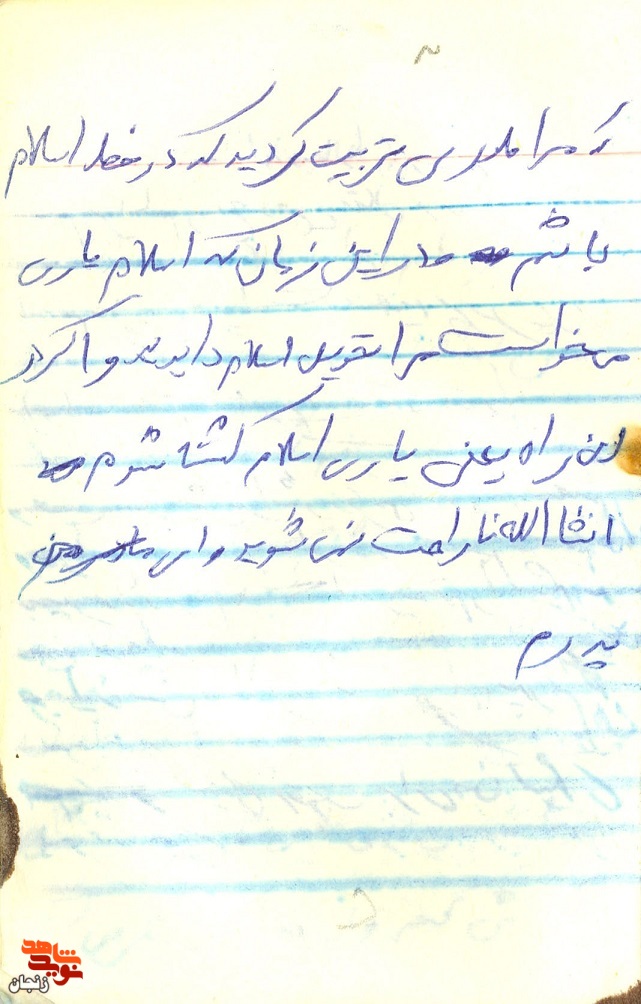 که مرا طوری تربیت کردید که در خط اسلام
باشم و در این زمان که اسلام یاری
میخواست مرا تقویل اسلام دادید و اگر در
این راه یعنی یاری اسلام کشتا شوم
انشاالله ناراحت نمی شوید و ای
پدرم
نوید شاهد
زنجان